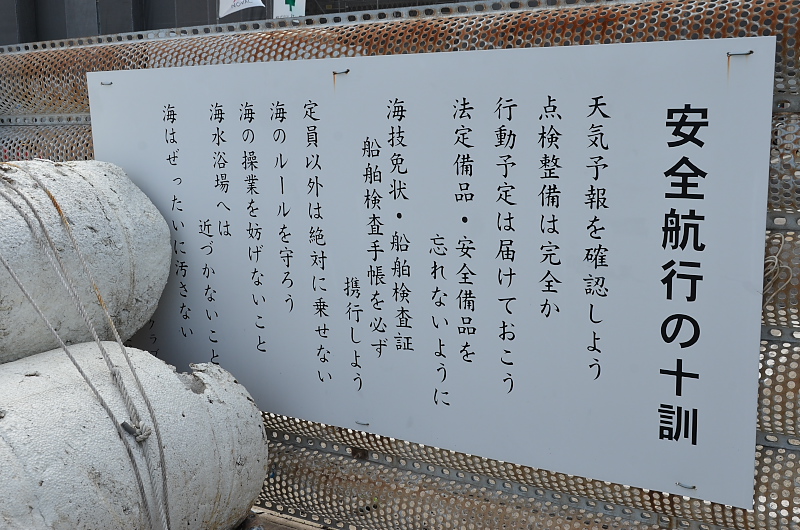 安全航行の十訓
天気予報を確認しよう
点検整備は完全か
行動予定は届けておこう
法定備品・安全備品を
忘れないように
海技免状・船舶検査証
船舶検査手帳を必ず
携行しよう
定員以外は絶対に乗せない
海のルールを守ろう
海の操業を妨げないこと
海水浴場へは
近づかないこと
海はぜったいに汚さない